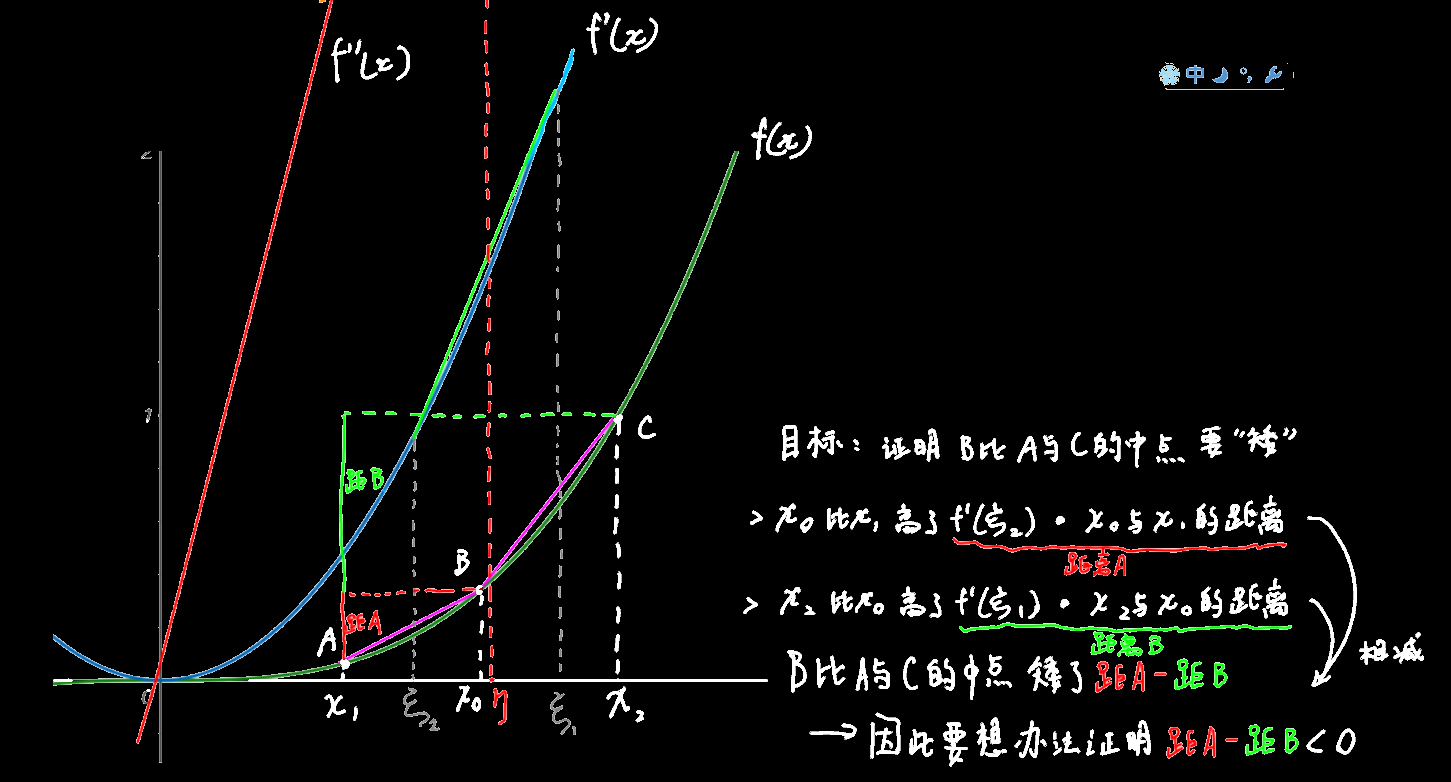 f''(x)
f'(x)
f(x)
中
2
1
0
距B
距A
A
B
C
x₁
ξ₂
x₀
η
ξ₁
x₂
目标：证明 B比 A与 C的中点 要“矮”
> x₀比x₁高了 f'(ξ₂) · x₀与x₁的距离
距离A
> x₂比x₀高了 f'(ξ₁) · x₂与x₀的距离
距离B
相减
B比A与C的中点 矮了距A-距B
→因此要想办法证明距A-距B<0